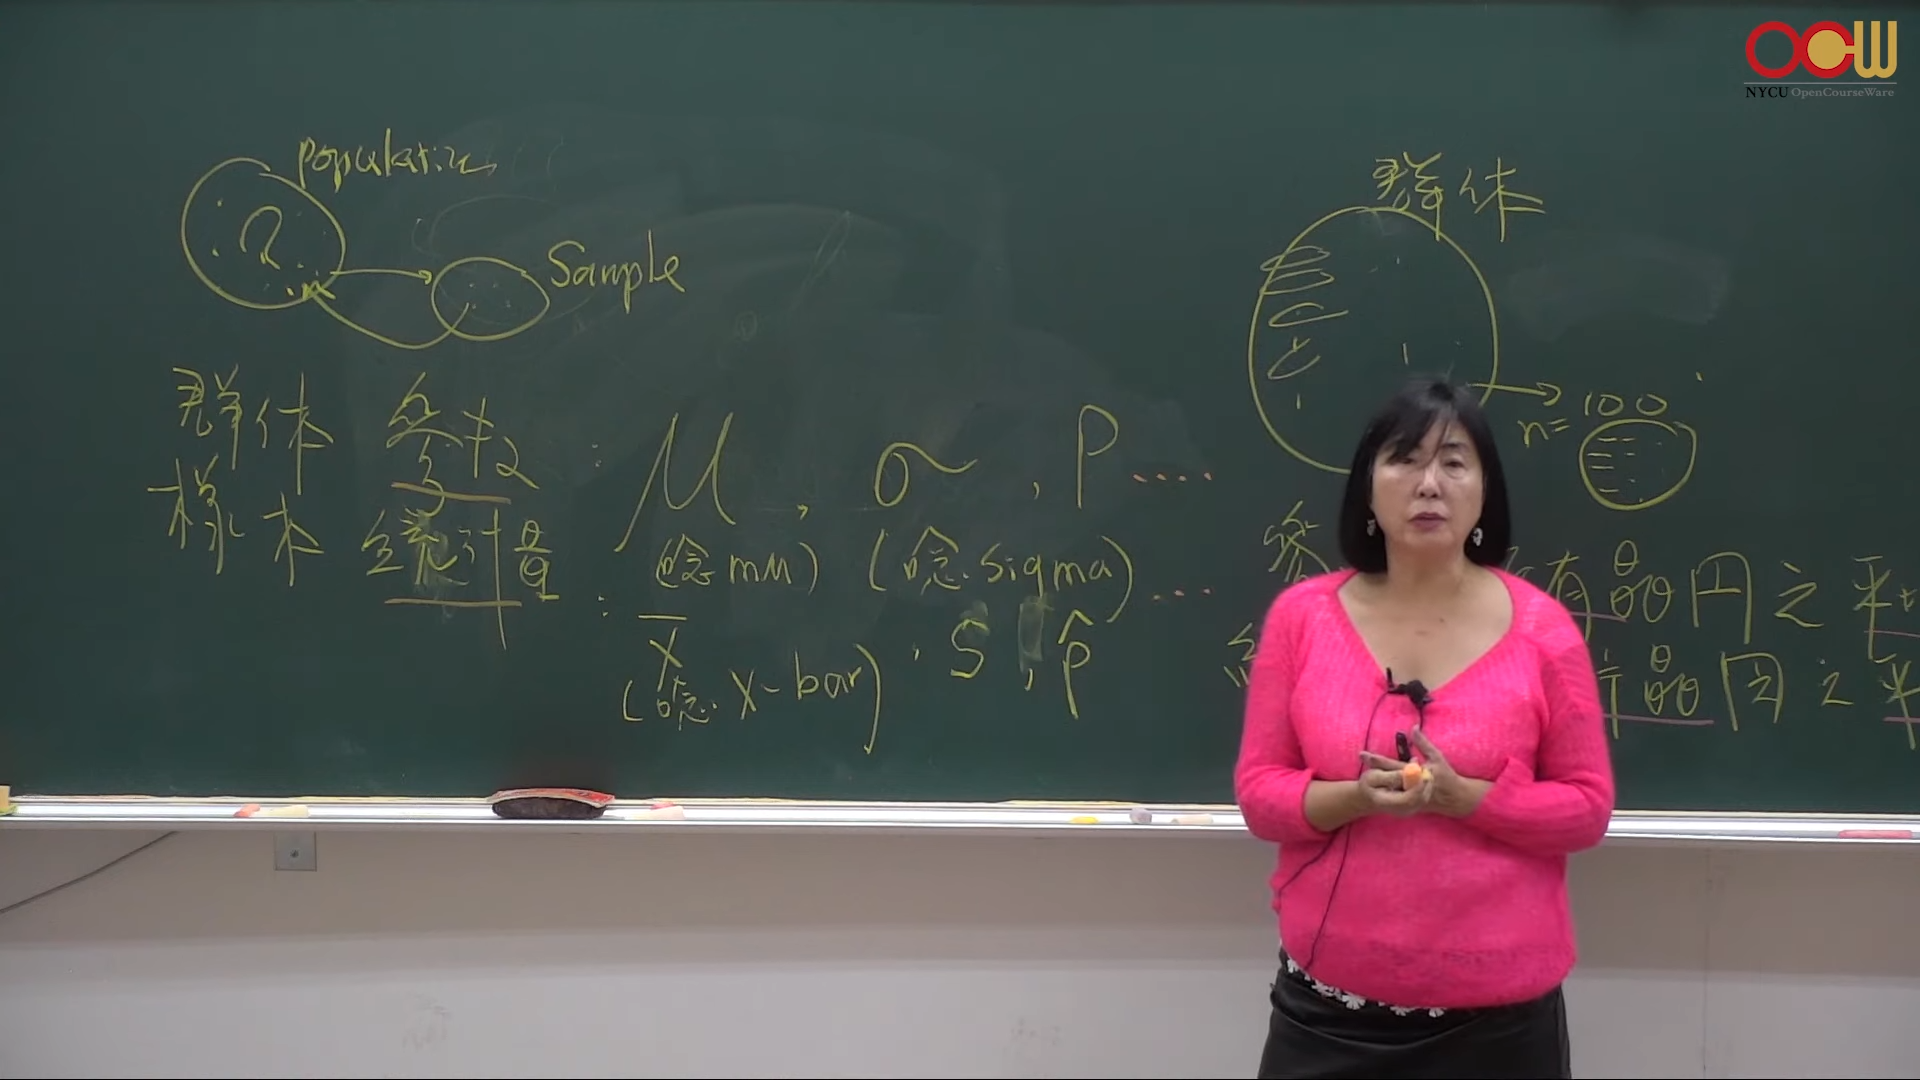 OCW
NYCU OpenCourseWare
population
Sample
群体 参数 : μ , σ , P ....
(唸 mu) (唸 sigma) ...
样本 統计量 : x̄ , S , p̂
(唸 x-bar)
群体
n=100
有晶円之平
晶円之平